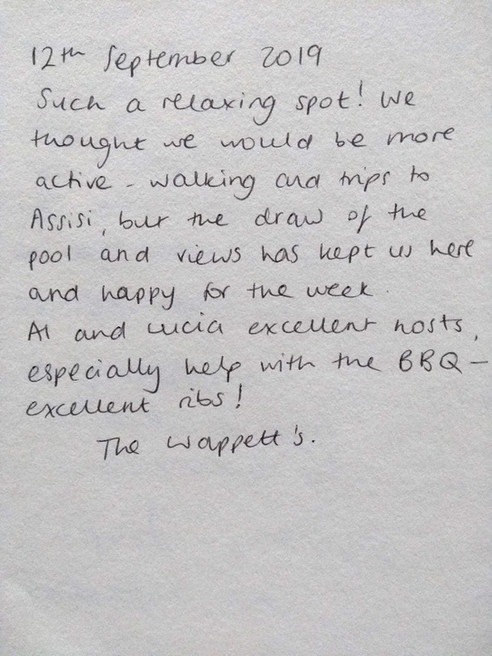 12th September 2019
Such a relaxing spot! We
thought we would be more
active - walking and trips to
Assisi, but the draw of the
pool and views has kept us here
and happy for the week.
Al and Lucia excellent hosts,
especially help with the BBQ -
excellent ribs!
The Wappett's.